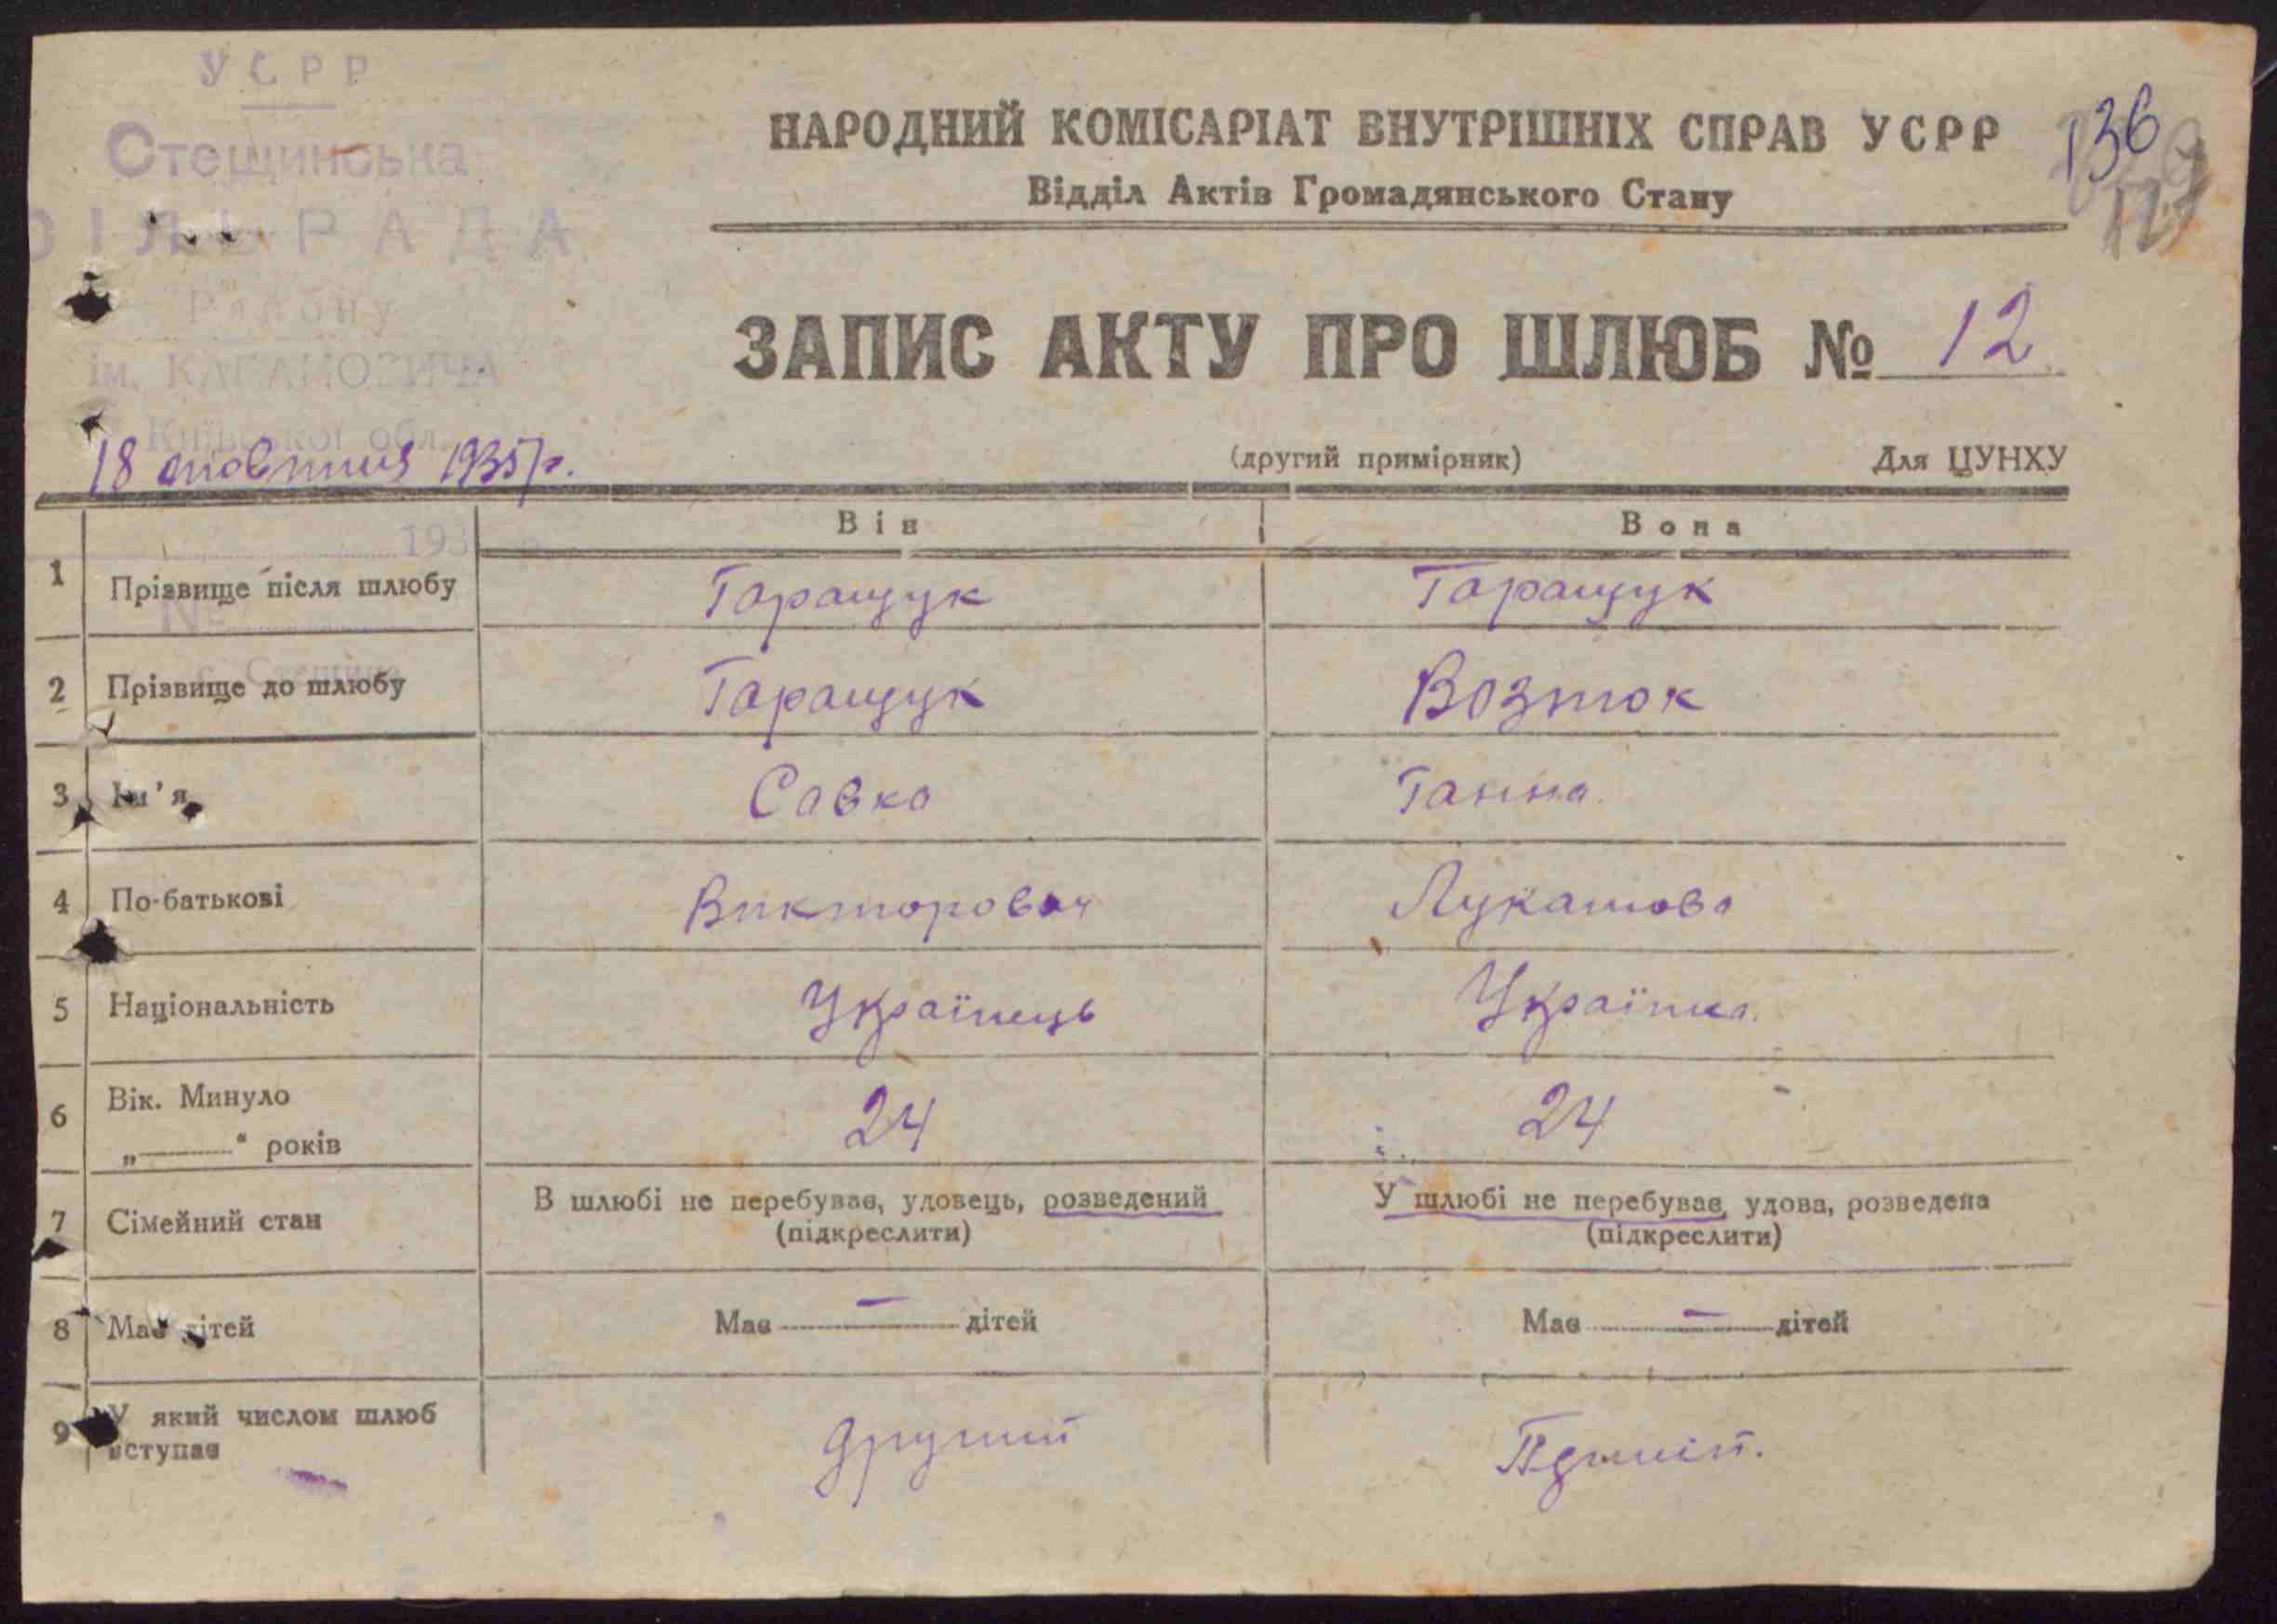 УСРР
Стещинська
СІЛЬРАДА
Району
ім. КАГАНОВИЧА
Київської обл.
18 жовтния 1935 р.
НАРОДНИЙ КОМІСАРІАТ ВНУТРІШНІХ СПРАВ УСРР
Відділ Актів Громадянського Стану
136
ЗАПИС АКТУ ПРО ШЛЮБ № 12
(другий примірник) Для ЦУНХУ
193
Він Вона
1 Прізвище після шлюбу Таращук Таращук
№
с. Стещина
2 Прізвище до шлюбу Таращук Возток
3 Ім'я Савка Ганна
4 По-батькові Викторович Лукашова
5 Національність Українець Українка
6 Вік. Минуло „ “ років 24 24
7 Сімейний стан В шлюбі не перебуває, удовець, розведений (підкреслити) У шлюбі не перебуває, удова, розведена (підкреслити)
8 Має дітей Має — дітей Має — дітей
9 У який числом шлюб вступає другий